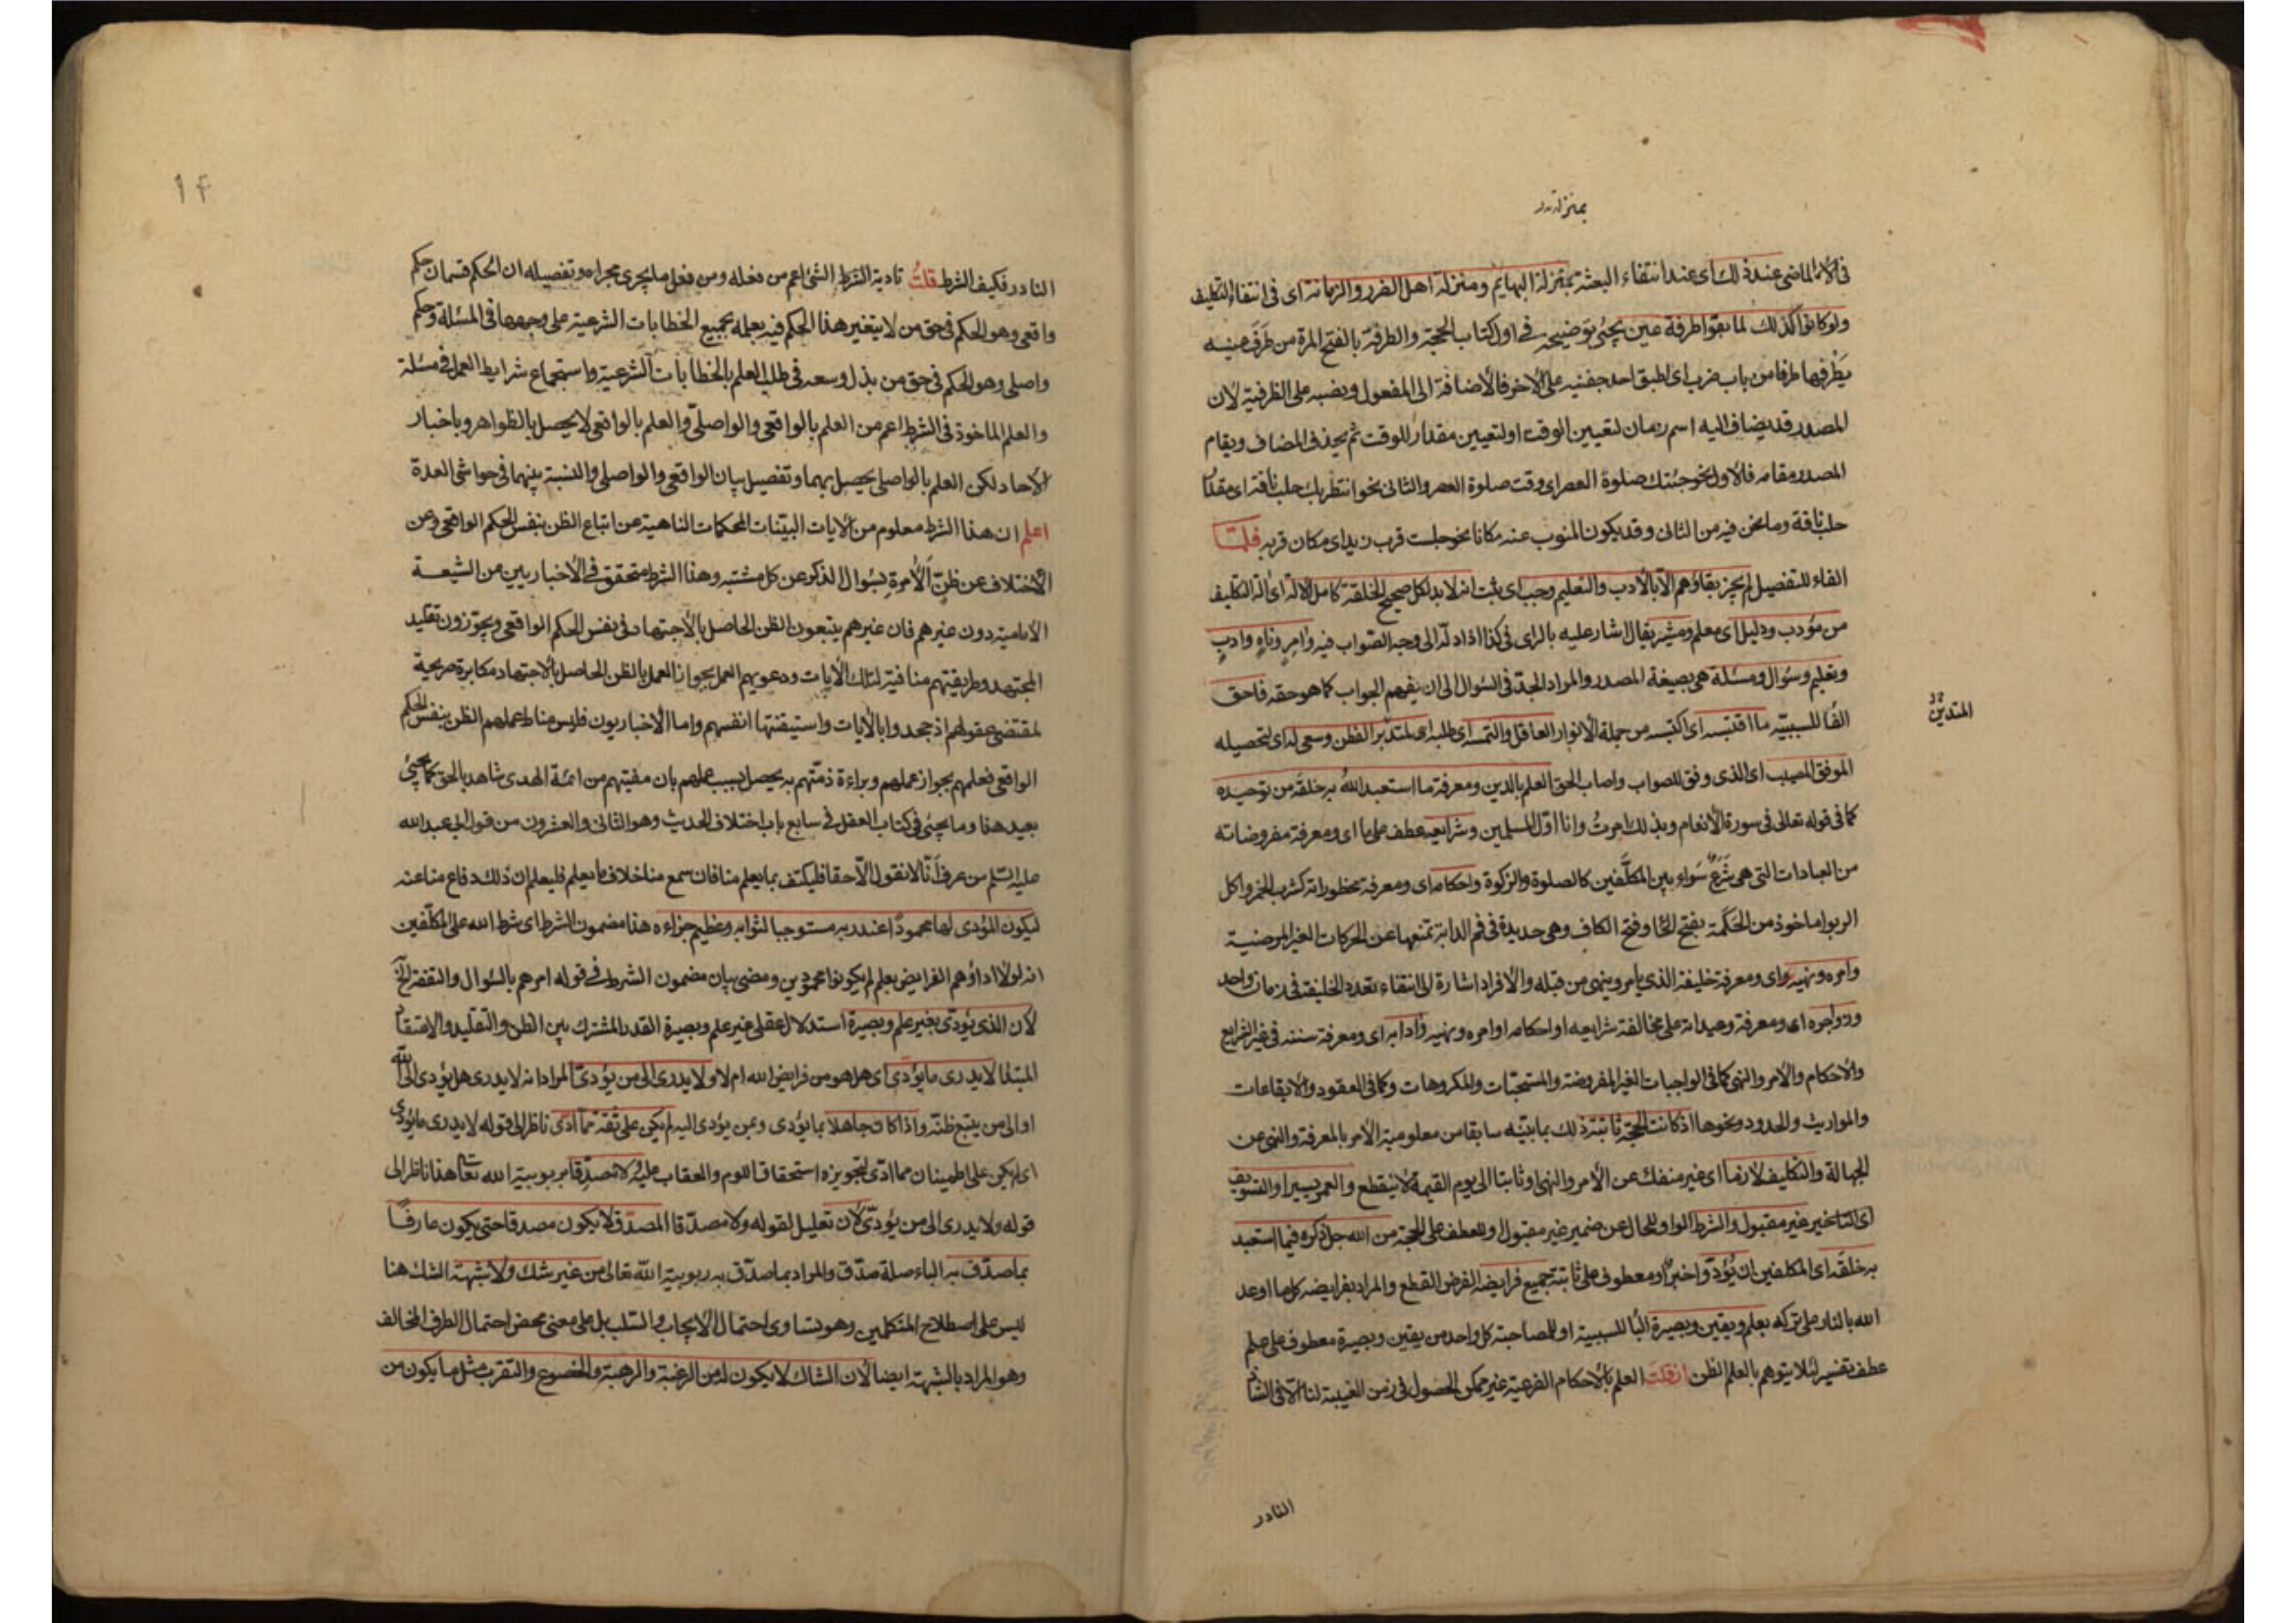 بمنزلة
فى الأمر الماضى عند ذلك اى عند انتفاء البعثة بمنزلة البهايم ومنزلة اهل الضرر والزمانة اى فى انتفاء التكليف
ولو كانوا كذلك لما بقوا طرفة عين يجئ توضيحه فى اول كتاب الحجة والطرفة بالفتح المرة من طرف عينيه
يطرفها طرفا من باب ضرب اى اطبق احد جفنيه على الاخر فالأضافة الى المفعول ونصبه على الظرفية لأن
المصدر قد يضاف اليه اسم زمان لتعيين الوقت او لتعيين مقدار للوقت ثم يحذف المضاف ويقام
المصدر مقامه فالأول نحو جئتك صلوة العصر اى وقت صلوة العصر والثانى نحو انتظر بك حلب ناقة اى مقدار
حلب ناقة وما نحن فيه من الثانى وقد يكون المنوب عنه مكانا نحو جلست قرب زيد اى مكان قربه فلمّا
الفاء للتفصيل لم يجز بقاؤهم الّا بالأدب والتعليم وجب اى ثبت انه لا بد لكل صحيح الخلقة كامل الألة اى الة التكليف
من مؤدب ودليل اى معلم ومشير يقال اشار عليه بالراى فى كذا اذا دلّه الى وجه الصواب فيه وآمر وناهٍ وادبٍ
وتعليم وسؤال ومسئلة هى بصيغة المصدر والمراد الجدّ فى السؤال الى ان يفهم الجواب كما هو حقه فاحق
الفا للسببيّة ما اقتبسه اى اكتسبه من جملة الأنوار العاقل والتمسه اى طلبه اى المتدبّر الفطن وسعى له اى لتحصيله
المتدين
الموفق المصيب اى الذى وفق للصواب واصاب الحق العلم بالدين ومعرفة ما استعبد الله به خلقه من توحيده
كما فى قوله تعالى فى سورة الأنعام وبذلك امرتُ وانا اوّل المسلمين وشرايعه عطف على ما اى ومعرفة مفروضاته
من العبادات التى هى شَرَعٌ سَواء بين المكلّفين كالصلوة والزكوة واحكامه اى ومعرفة محظوراته كشرب الخمر واكل
الربوا ماخوذ من الحَكَمَة بفتح الحا وفتح الكاف وهى حديدة فى فم الدابة تمنعها عن الحركات الغير المرضية
وامره ونهيه اى ومعرفة خليفة الذى يأمر وينهى من قبله والأفراد اشارة الى انتفاء تعدد الخليفة فى زمان واحد
وزواجره اى ومعرفة وعيداته على مخالفة شرايعه او احكامه او امره ونهيه وادابه اى ومعرفة سننه فى غير الشرايع
والأحكام والأمر والنهى كما فى الواجبات الغير المفروضة والمستحبّات والمكروهات وكما فى العقود والأيقاعات
والمواريث والحدود ونحوها اذ كانت الحجّة ثابتة ذلك بما بيّنه سابقا من معلومية الأمر بالمعرفة والنهى عن
الجهالة والتكليف لازما اى غير منفك عن الأمر والنهى او ثابتا الى يوم القيمة لا ينقطع والعمر يسيرا والتسويف
اى التاخير غير مقبول والشرط الواو للحال عن ضمير غير مقبول وللعطف على الحجة من الله جل ذكره فيما استعبد
به خلقه اى المكلفين ان يؤدّوا خبر او معطوف على ثابتة جميع فرايضه الفرض القطع والمراد بفرايضه كل ما اوعد
الله بالنار على تركه بعلم ويقين وبصيرة البا للسببية او للمصاحبة كل واحد من يقين وبصيرة معطوف على علم
عطف تفسير لئلا يتوهم بالعلم الظن ان قلت العلم بالأحكام الفرعية غير ممكن الحصول فى زمن الغيبة لنا الّا فى الشاذ
النادر
۱۴
النادر فكيف الشرط قلتُ تادية الشرط الشئ اعم من فعله ومن فعل ما يجرى مجراه وتفصيله ان الحكم قسمان حكم
واقعى وهو الحكم فى حق من لا يتغير هذا الحكم فيه بعلمه بجميع الخطابات الشرعية على وجهها فى المسئلة وحكم
واصلى وهو الحكم فى حق من بذل وسعه فى طلب العلم بالخطابات الشرعية واستجماع شرايط العمل فى مسئلة
والعلم الماخوذ فى الشرط اعم من العلم بالواقعى والواصلّى والعلم بالواقعى لا يحصل بالظواهر وباخبار
الأحاد لكن العلم بالواصلى يحصل بهما وتفصيل بيان الواقعى والواصلى والنسبة بينهما فى حواشى العدة
اعلم ان هذا الشرط معلوم من الأيات البيّنات المحكمات الناهية عن اتباع الظن بنفس الحكم الواقعى وعن
الأختلاف عن ظنّ الآمرة بسؤال الذكر عن كل مشتبه وهذا الشرط متحقق فى الأخباريين من الشيعة
الأمامية دون غيرهم فان غيرهم يتبعون الظن الحاصل بالأجتهاد فى نفس الحكم الواقعى ويجوّزون تقليد
المجتهد وطريقتهم منافية لتلك الأيات ودعويهم العمل بجواز العمل بالظن الحاصل بالأجتهاد مكابرة صريحة
لمقتضى عقولهم اذ جحدوا بالأيات واستيقنتها انفسهم واما الأخباريون فليس مناط عملهم الظن بنفس الحكم
الواقعى فعلمهم بجواز عملهم وبراءة ذمّتهم به يحصل بسبب علمهم بان مفتيهم من ائمة الهدى شاهد بالحق كما يجئ
بعيد هذا وما يجئ فى كتاب العقل فى سابع باب اختلاف الحديث وهو الثانى والعشرون من قول ابى عبد الله
عليه السّلم من عرف انّا لا نقول الّا حقا فليكتف بما يعلم منا فان سمع منا خلاف ما يعلم فليعلم ان ذلك دفاع منا عنه
ليكون المؤدى لها محمودًا عند ربه مستوجبا لثوابه وعظيم جزاءه هذا مضمون الشرط اى شرط الله على المكلّفين
انه لولا اداؤهم الفرايض بعلم لم يكونوا محمودين ومضى بيان مضمون الشرط فى قوله امرهم بالسّؤال والتفقة الخ
لأن الذى يؤدّى بغير علم وبصيرة استدلال عقلى غير علم وبصيرة القدر المشترك بين الظن والتقليد والاعتقاد
المبتدا لا يدرى ما يؤدّى اى هل هو من فرايض الله ام لا ولا يدرى الى من يؤدىّ المراد انه لا يدرى هل يؤدى الى الله
او الى من يتبع ظنّه واذا كان جاهلا بما يؤدى وبمن يؤدى اليه لم يكن على ثقة ممّا ادّى ناظر الى قوله لا يدرى ما يؤدى
اى لم يكن على اطمينان مما ادّى لتجويزه استحقاق اللوم والعقاب عليه ولا مصدّقا بربوبية الله تعا هذا ناظر الى
قوله ولا يدرى الى من يؤدىّ لأن تعليل لقوله ولا مصدّقا المصدّق لا يكون مصدقا حتى يكون عارفًا
بما صدّق به الباء صلة صدّق والمراد بما صدّق به ربوبية الله تعالى من غير شك ولا شبهة الشك هنا
ليس على اصطلاح المتكلمين وهو تساوى احتمال الأيجاب والسّلب بل على معنى محض احتمال الطرف المخالف
وهو المراد بالشبهة ايضا لأن الشاك لا يكون له من الرغبة والرهبة والخضوع والتقرب مثل ما يكون من